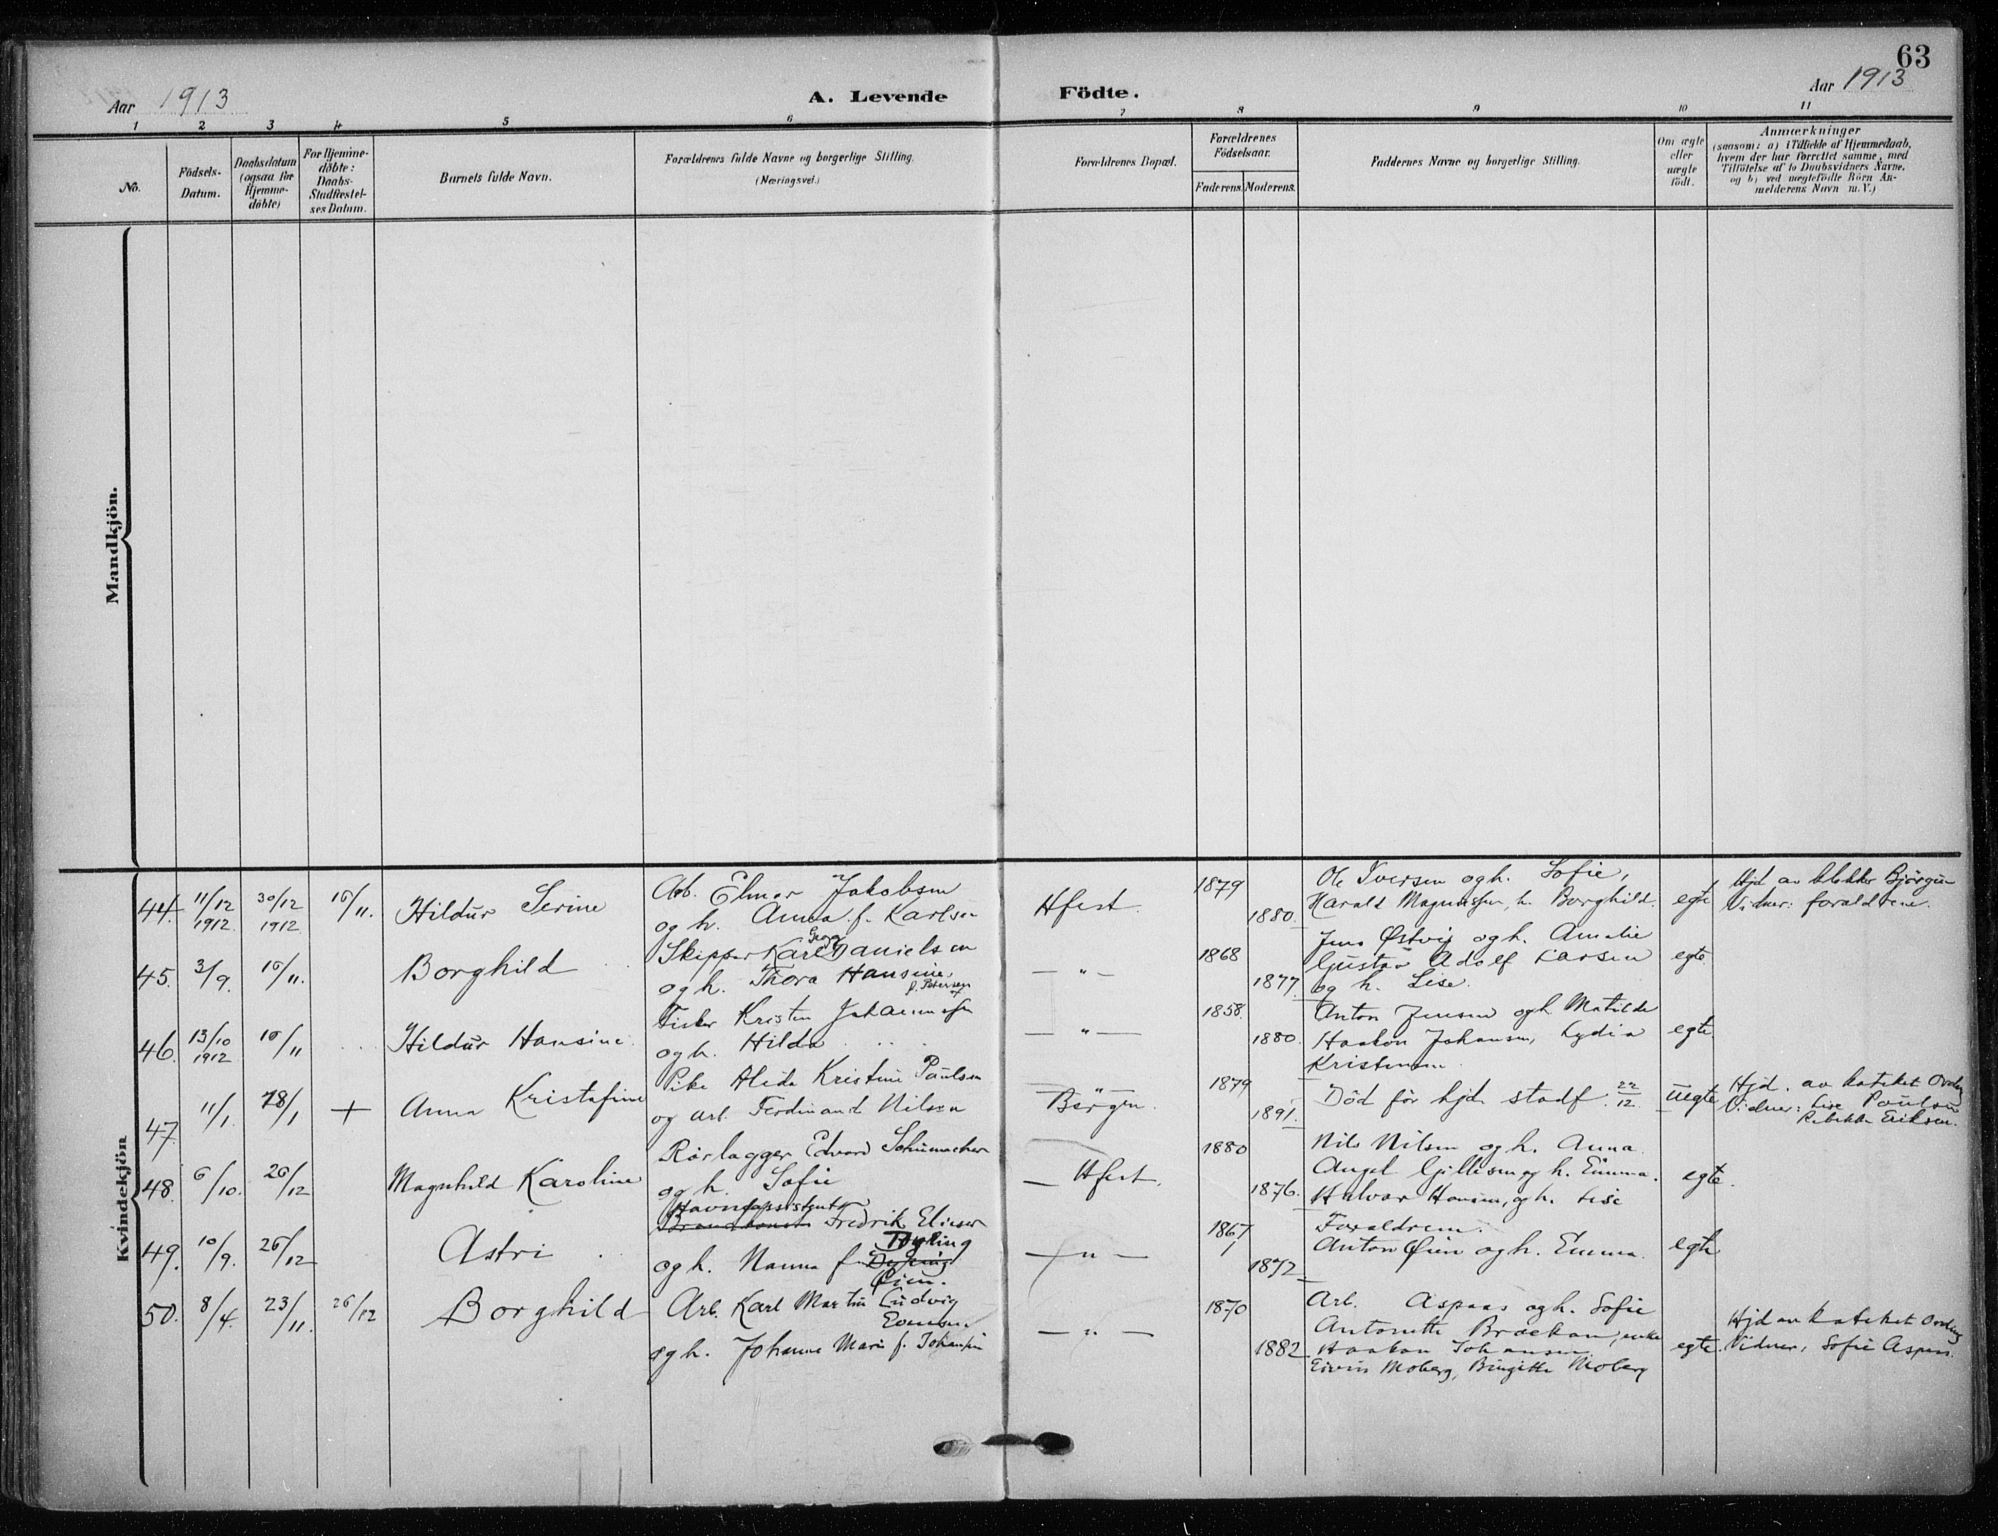 63
Aar 1913
A. Levende Födte.
Aar 1913
1 2 3 4 5 6 7 8 9 10 11
No.
Födsels-
Datum.
Daabsdatum
(ogsaa for
Hjemme-
döbte)
For Hjemme-
döbte:
Daabs-
Stadfæstel-
ses Datum.
Barnets fulde Navn.
Forældrenes fulde Navne og borgerlige Stilling.
(Næringsvei.)
Forældrenes Bopæl.
Forældrenes
Födselsaar.
Faderens. Moderens.
Faddernes Navne og borgerlige Stilling.
Om ægte
eller
uægte
födt.
Anmærkninger
(saasom: a) i Tilfælde af Hjemmedaab,
hvem der har forrettet samme, med
Tilföielse af to Daabsvidners Navne,
og b) ved uægtefödte Börn An-
melderens Navn m. V.)
Mandkjön.
Kvindekjön
44. 11/12 1912 30/12 1912 16/11. Hildur Serine
Arb. Elmer Jakobsen
og h. Anna f. Karlsen
Hfest. 1879 1880.
Ole Iversen og h. Sofie,
Harald Magnussen, h. Borghild.
egte
Hjd av klokker Björgen
Vidner: foraldrene.
45. 3/9. 16/11. Borghild
Skipper Karl Georg Danielsen
og h. Thora Hansine
f. Petersen
— " — 1868 1877.
Jens Østvig og h. Amalie
Gustav Adolf Larsen
og h. Lise.
egte.
46. 13/10 1912 16/11 Hildur Hansine.
Fisker Kristen Johannessen
og h. Hilda
— " — 1858. 1880.
Anton Jensen og h Matilde
Haakon Johansen, Lydia
Kristensen
egte.
47 11/1. 28/1 + Anna Kristafine
Pike Alida Kristine Paulsen
og arb. Ferdinand Nilsen
Bergen. 1879 1891.
Död för hjd. stadf. 22/12.
uegte
Hjd. av kateket Ording
Vidner: Lise Poulsen
Rebekka Eriksen.
48. 6/10. 26/12 Magnhild Karoline
Rörlægger Edvard Schumacher
og h. Sofie
— Hfest. 1880 1876.
Nils Nilsen og h. Anna.
Angel Gillesen og h. Emma.
Halvar Hansen, og h. Lise
egte.
49. 10/9. 26/12 Astri
Havneassistent
Fredrik Elieser
Dyring
og h. Nanna f. Dyring
Øien.
— " — 1867 1872
Foraldrene.
Anton Øien og h. Emma.
egte
50. 8/4. 23/11. 26/12 Borghild
Arb. Karl Martin Ludvig
Evensen
og h. Johanne Marie f. Johansen
— " — 1870 1882
Arb. Aspaas og h. Sofie
Antonette Brækan, enke
Haakon Johansen.
Eivin Moberg, Birgitte Moberg
egte.
Hjd av kateket Ording
Vidner, Sofie Aspaas.